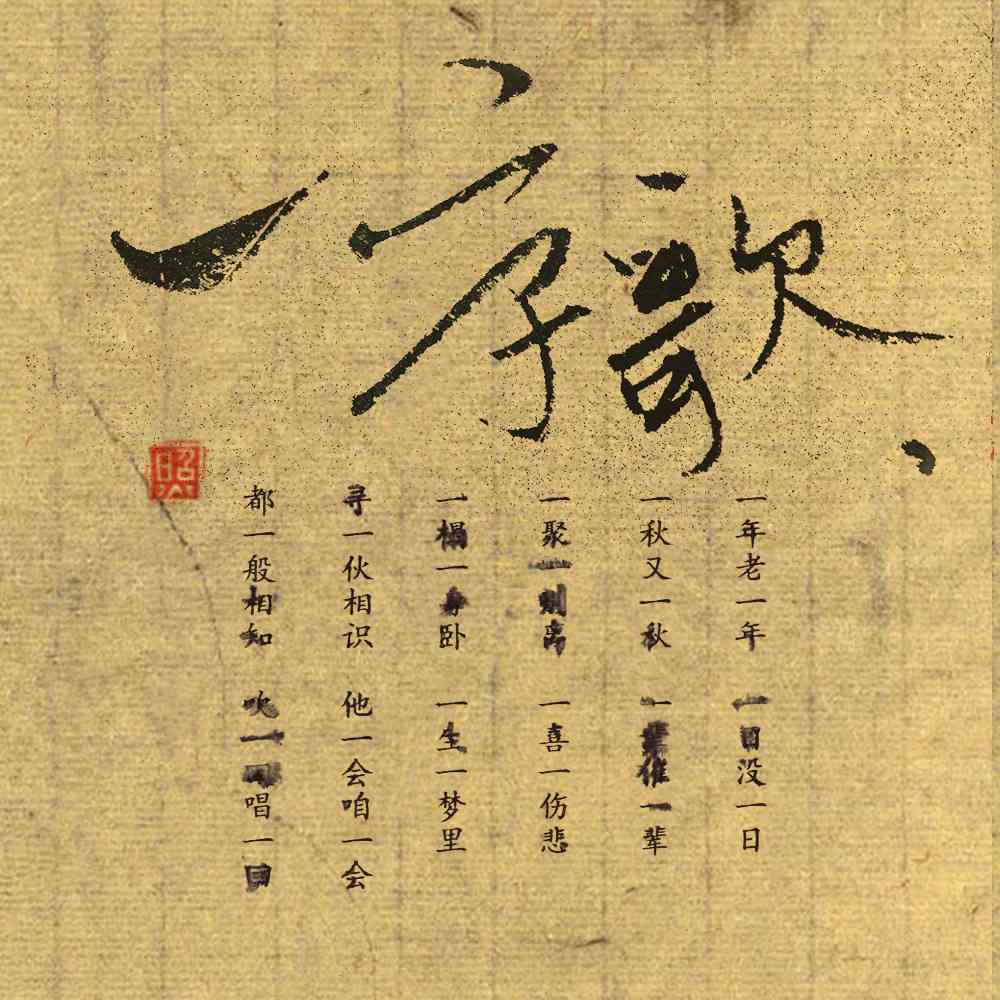 一字歌
一年老一年 一日没一日
一秋又一秋 一辈催一辈
一聚一别离 一喜一伤悲
一榻一身卧 一生一梦里
寻一伙相识 他一会咱一会
都一般相知 吹一回唱一回